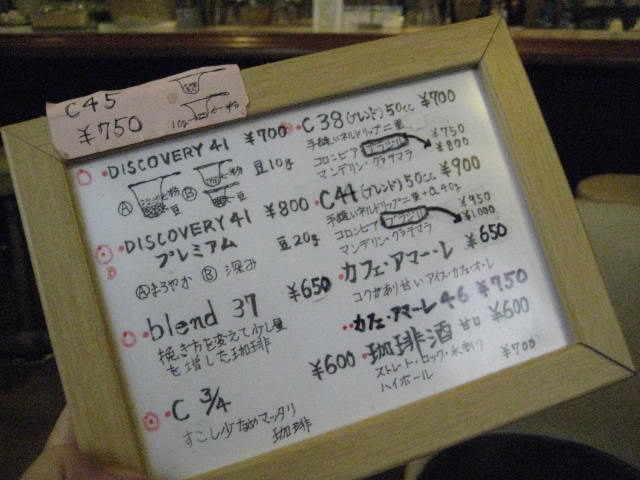 C45
¥750
DISCOVERY 41 ¥700
豆10g
Ⓐ 粉 豆 Ⓑ 粉 豆
DISCOVERY 41 ¥800
プレミアム 豆20g
Ⓐまろやか Ⓑ深み
blend 37 ¥650
挽き方を変えて少し量
を増した珈琲
C 3/4 ¥600
すこし少なめマッタリ
珈琲
C38(ブレンド)50cc ¥700
手縫いネルドリップ 二重
¥750
コロンビア ブラジル ¥800
マンデリン・グァテマラ
C44(ブレンド)50cc ¥900
手縫いネルドリップ 二重
コロンビア ブラジル ¥950
¥1,000
マンデリン・グァテマラ
カフェ・アマーレ ¥650
コクがあり甘いアイス・カフェ・オ・レ
カフェ・アマーレ46 ¥750
珈琲酒 ¥600
ストレート・ロック・水割り
ハイボール ¥700